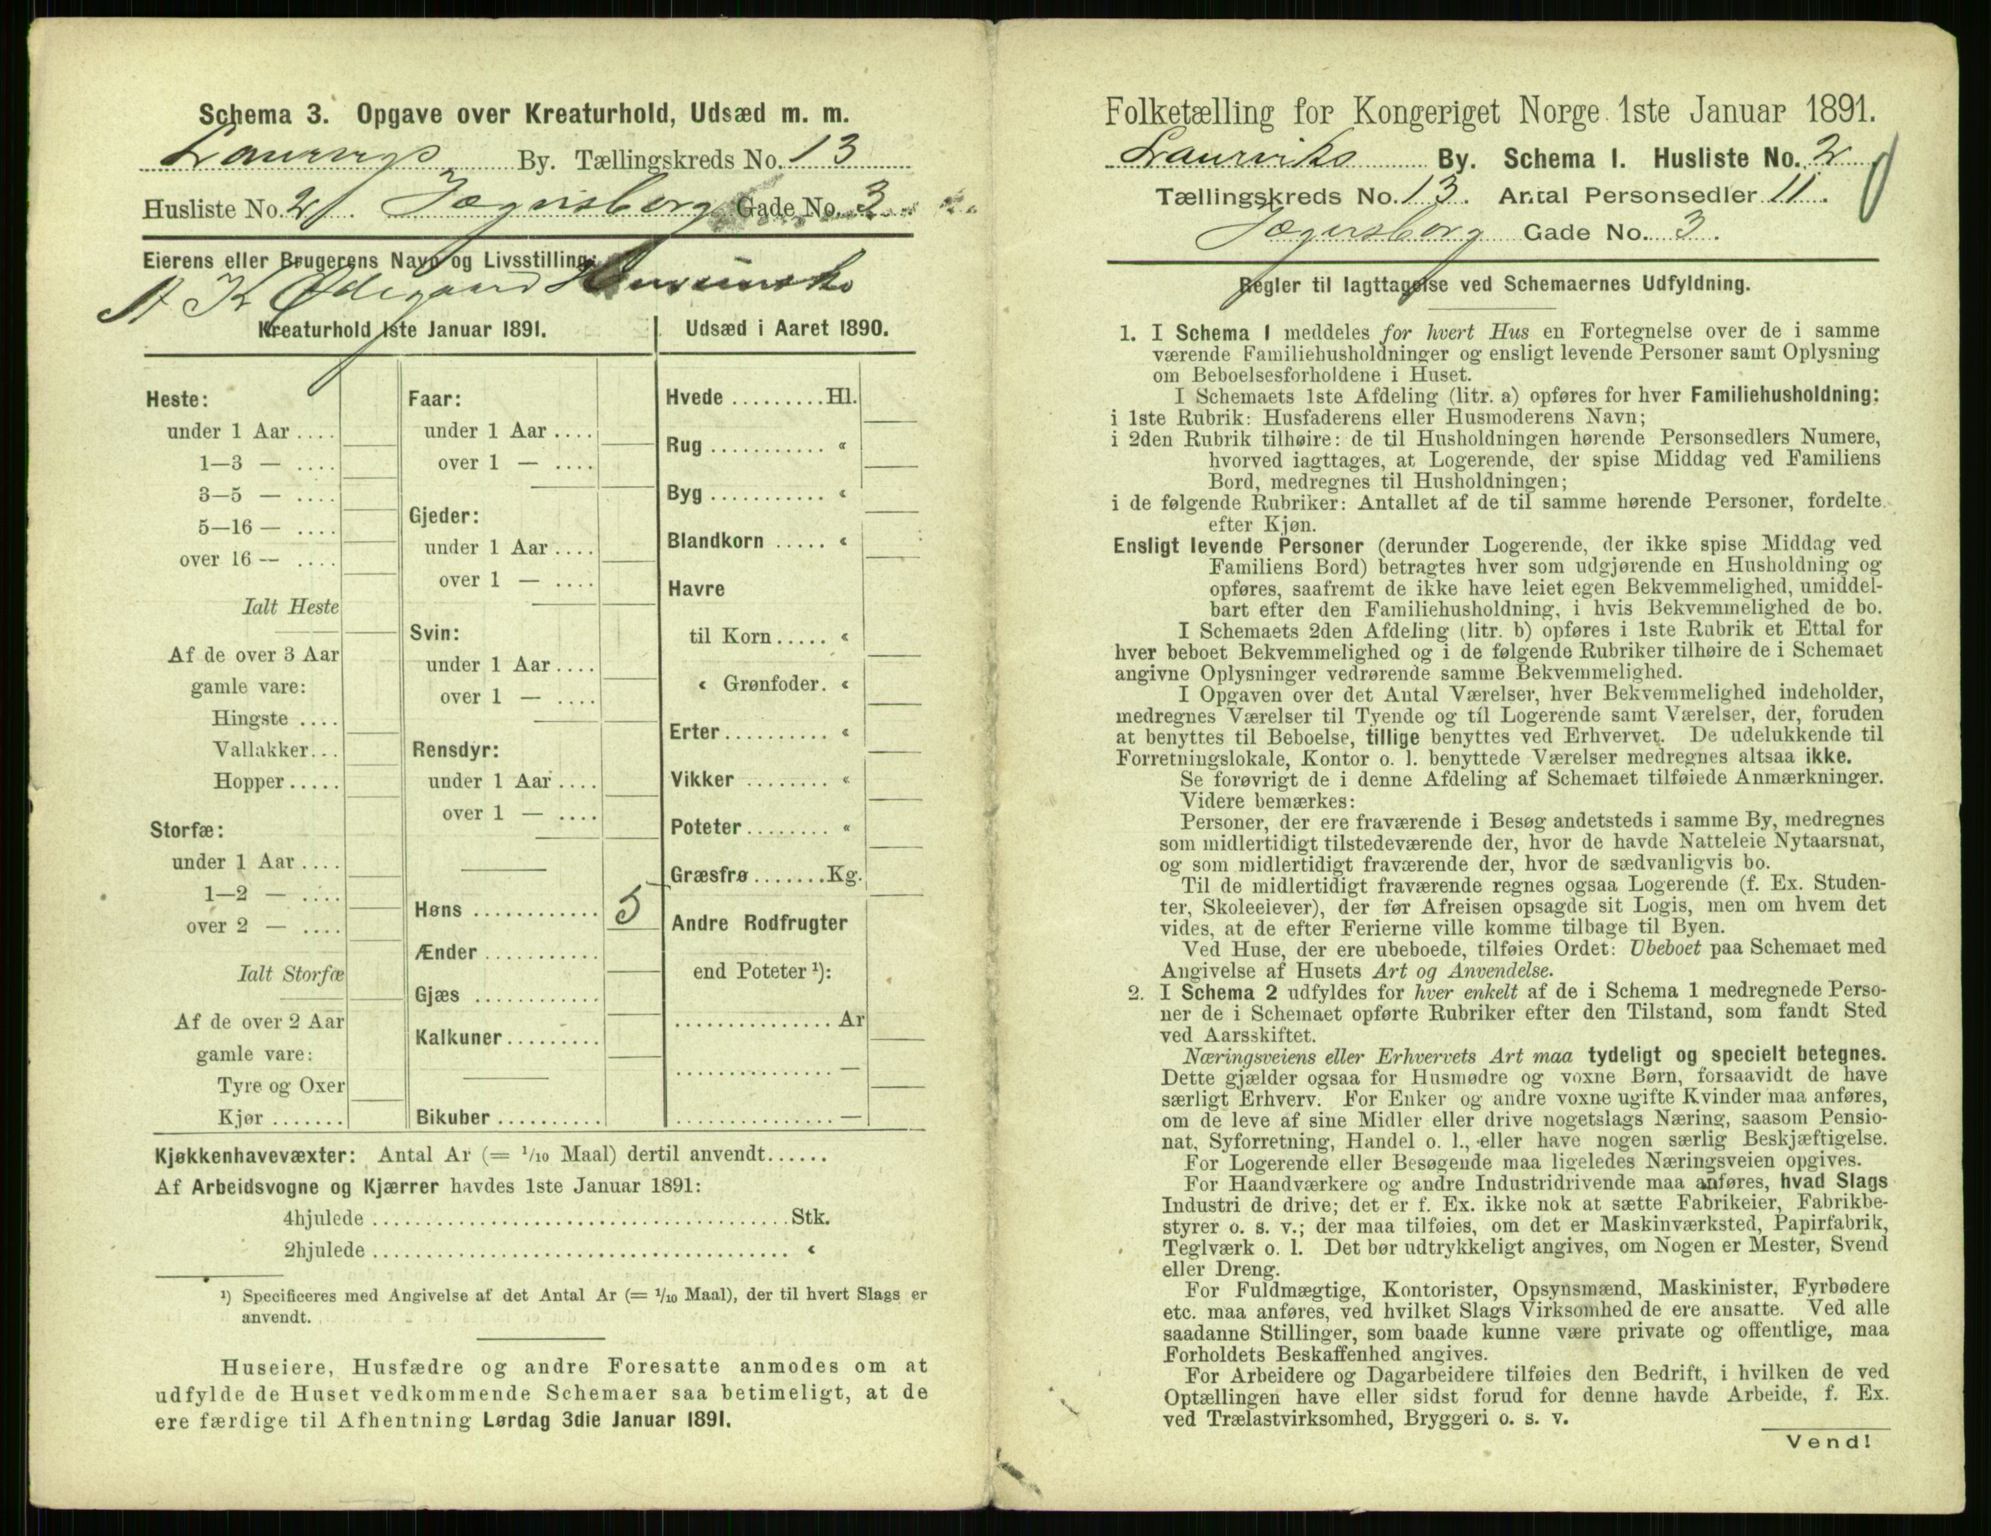 Schema 3. Opgave over Kreaturhold, Udsæd m. m.
Laurvigs By. Tællingskreds No. 13
Husliste No. 2 Jægersborg Gade No. 3
Eierens eller Brugerens Navn og Livsstilling:
A K Ødegaard
Kreaturhold 1ste Januar 1891.
Heste:
under 1 Aar ....
1—3 — ....
3—5 — ....
5—16 — ....
over 16 — ....
Ialt Heste
Af de over 3 Aar
gamle vare:
Hingste ....
Vallakker...
Hopper.....
Storfæ:
under 1 Aar ....
1—2 — ....
over 2 — ....
Ialt Storfæ
Af de over 2 Aar
gamle vare:
Tyre og Oxer
Kjør .......
Faar:
under 1 Aar ....
over 1 — ....
Gjeder:
under 1 Aar ....
over 1 — ....
Svin:
under 1 Aar ....
over 1 — ....
Rensdyr:
under 1 Aar ....
over 1 — ....
Høns ............ 5
Ænder ...........
Gjæs ............
Kalkuner.........
Bikuber ..........
Udsæd i Aaret 1890.
Hvede .........Hl.
Rug ........... «
Byg ........... «
Blandkorn ..... «
Havre
til Korn ..... «
« Grønfoder. «
Erter.......... «
Vikker ........ «
Poteter........ «
Græsfrø.......Kg.
Andre Rodfrugter
end Poteter ¹):
............... Ar
............... —
............... —
Kjøkkenhavevæxter: Antal Ar (= 1/10 Maal) dertil anvendt......
Af Arbeidsvogne og Kjærrer havdes 1ste Januar 1891:
4hjulede ......................................Stk.
2hjulede ...................................... «
¹) Specificeres med Angivelse af det Antal Ar (= 1/10 Maal), der til hvert Slags er
anvendt.
Huseiere, Husfædre og andre Foresatte anmodes om at
udfylde de Huset vedkommende Schemaer saa betimeligt, at de
ere færdige til Afhentning Lørdag 3die Januar 1891.
Folketælling for Kongeriget Norge 1ste Januar 1891.
Laurviks By. Schema 1. Husliste No. 2
Tællingskreds No. 13. Antal Personsedler 11.
Jægersborg Gade No. 3.
Regler til Iagttagelse ved Schemaernes Udfyldning.
1. I Schema 1 meddeles for hvert Hus en Fortegnelse over de i samme
værende Familiehusholdninger og ensligt levende Personer samt Oplysning
om Beboelsesforholdene i Huset.
I Schemaets 1ste Afdeling (litr. a) opføres for hver Familiehusholdning:
i 1ste Rubrik: Husfaderens eller Husmoderens Navn;
i 2den Rubrik tilhøire: de til Husholdningen hørende Personsedlers Numere,
hvorved iagttages, at Logerende, der spise Middag ved Familiens
Bord, medregnes til Husholdningen;
i de følgende Rubriker: Antallet af de til samme hørende Personer, fordelte
efter Kjøn.
Ensligt levende Personer (derunder Logerende, der ikke spise Middag ved
Familiens Bord) betragtes hver som udgjørende en Husholdning og
opføres, saafremt de ikke have leiet egen Bekvemmelighed, umiddel-
bart efter den Familiehusholdning, i hvis Bekvemmelighed de bo.
I Schemaets 2den Afdeling (litr. b) opføres i 1ste Rubrik et Ettal for
hver beboet Bekvemmelighed og i de følgende Rubriker tilhøire de i Schemaet
angivne Oplysninger vedrørende samme Bekvemmelighed.
I Opgaven over det Antal Værelser, hver Bekvemmelighed indeholder,
medregnes Værelser til Tyende og til Logerende samt Værelser, der, foruden
at benyttes til Beboelse, tillige benyttes ved Erhvervet. De udelukkende til
Forretningslokale, Kontor o. l. benyttede Værelser medregnes altsaa ikke.
Se forøvrigt de i denne Afdeling af Schemaet tilføiede Anmærkninger.
Videre bemærkes:
Personer, der ere fraværende i Besøg andetsteds i samme By, medregnes
som midlertidigt tilstedeværende der, hvor de havde Natteleie Nytaarsnat,
og som midlertidigt fraværende der, hvor de sædvanligvis bo.
Til de midlertidigt fraværende regnes ogsaa Logerende (f. Ex. Studen-
ter, Skoleeiever), der før Afreisen opsagde sit Logis, men om hvem det
vides, at de efter Ferierne ville komme tilbage til Byen.
Ved Huse, der ere ubeboede, tilføies Ordet: Ubeboet paa Schemaet med
Angivelse af Husets Art og Anvendelse.
2. I Schema 2 udfyldes for hver enkelt af de i Schema 1 medregnede Perso-
ner de i Schemaet opførte Rubriker efter den Tilstand, som fandt Sted
ved Aarsskiftet.
Næringsveiens eller Erhvervets Art maa tydeligt og specielt betegnes.
Dette gjælder ogsaa for Husmødre og voxne Børn, forsaavidt de have
særligt Erhverv. For Enker og andre voxne ugifte Kvinder maa anføres,
om de leve af sine Midler eller drive nogetslags Næring, saasom Pensio-
nat, Syforretning, Handel o. l., eller have nogen særlig Beskjæftigelse.
For Logerende eller Besøgende maa ligeledes Næringsveien opgives.
For Haandværkere og andre Industridrivende maa anføres, hvad Slags
Industri de drive; det er f. Ex. ikke nok at sætte Fabrikeier, Fabrikbe-
styrer o. s. v.; der maa tilføies, om det er Maskinværksted, Papirfabrik,
Teglværk o. l. Det bør udtrykkeligt angives, om Nogen er Mester, Svend
eller Dreng.
For Fuldmægtige, Kontorister, Opsynsmænd, Maskinister, Fyrbødere
etc. maa anføres, ved hvilket Slags Virksomhed de ere ansatte. Ved alle
saadanne Stillinger, som baade kunne være private og offentlige, maa
Forholdets Beskaffenhed angives.
For Arbeidere og Dagarbeidere tilføies den Bedrift, i hvilken de ved
Optællingen have eller sidst forud for denne havde Arbeide, f. Ex.
ved Trælastvirksomhed, Bryggeri o. s. v.
Vend!